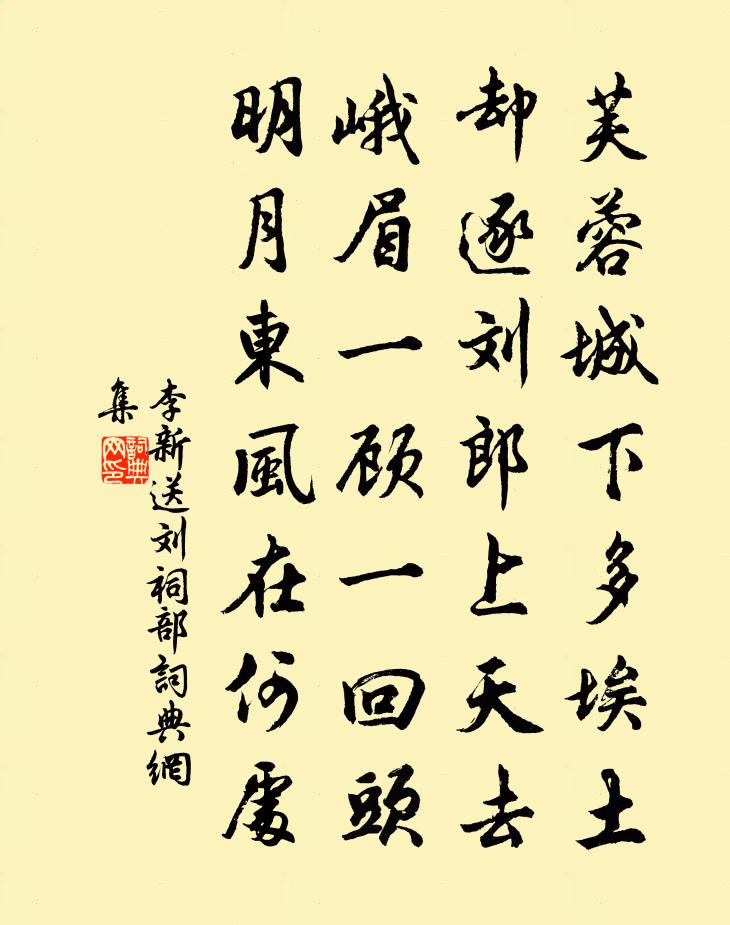 芙蓉城下多埃土
却逐刘郎上天去
峨眉一顾一回頭
明月東風在何處
李新送刘祠部詞典網
集
詞典
网印